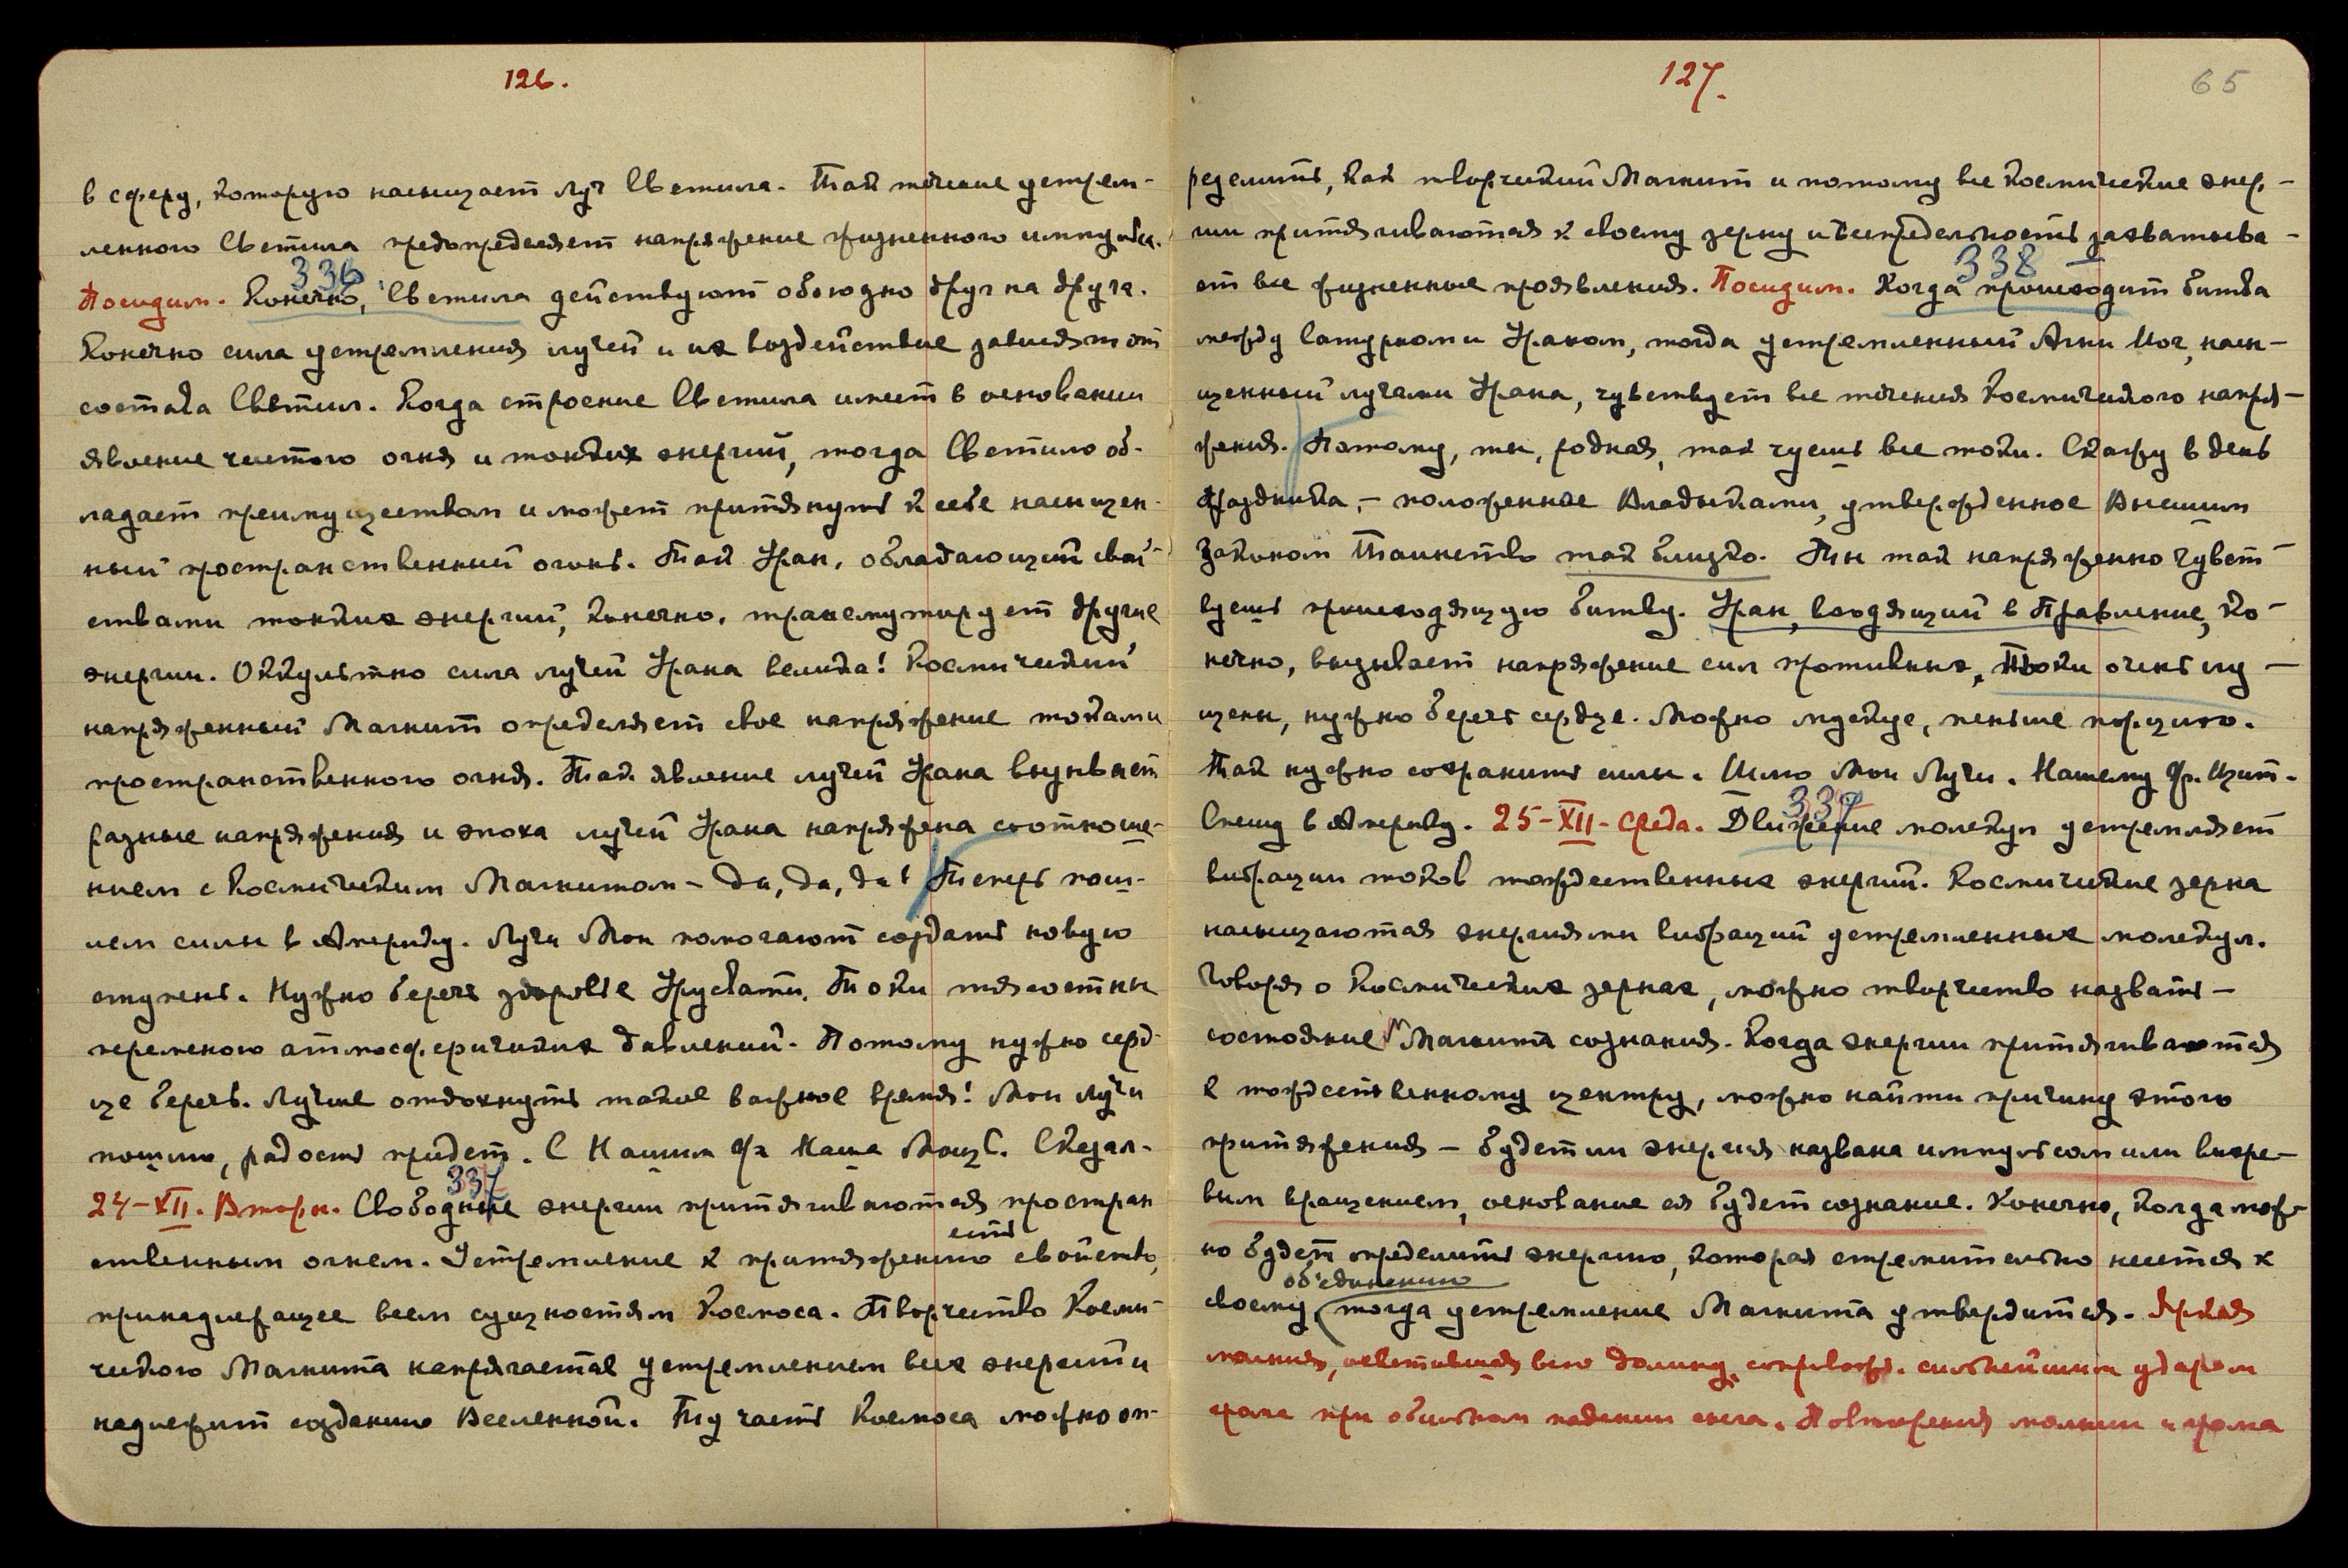 126.
в сферу, которую насыщает луч Светила. Так течение устрем-
ленного Светила предопределяет напряжение жизненного импульса.
336
Посидим. Конечно, Светила действуют обоюдно друг на друга.
Конечно сила устремления лучей и их воздействие зависят от
состава Светил. Когда строение Светила имеет в основании
явление чистого огня и тонких энергий, тогда Светило об-
ладает преимуществом и может притянуть к себе насыщен-
ный пространственный огонь. Так Уран, обладающий свой-
ствами тонких энергий, конечно, трансмутирует другие
энергии. Оккультно сила лучей Урана велика! Космический
напряженный Магнит определяет свое напряжение токами
пространственного огня. Так явление лучей Урана вызывает
разные напряжения и эпоха лучей Урана напряжена соотноше-
нием с Космическим Магнитом – да, да, да! Теперь пош-
лем силы в Америку. Лучи Мои помогают создать новую
ступень. Нужно беречь здоровье Урусвати. Токи тягостны
переменою атмосферических давлений. Потому нужно серд-
це беречь. Лучше отдохнуть такое важное время! Мои лучи
пошлю, радость придет. С Нашим Ф. Наша Мощь. Сказал.
337
24-XII. Вторн. Свободные энергии притягиваются простран
ственным огнем. Устремление к притяжению есть свойство,
принадлежащее всем сущностям Космоса. Творчество Косми-
ческого Магнита напрягается устремлением всех энергий и
надлежит созданию Вселенной. Ту часть Космоса можно оп-
127.
65
ределить, как творческий Магнит и потому все космические энер-
гии притягиваются к своему зерну и беспредельность захватыва-
338
ет все жизненные проявления. Посидим. Когда происходит битва
между Сатурном и Ураном, тогда устремленный Агни Иог, насы-
щенный лучами Урана, чувствует все течения Космического напря-
жения. Потому, ты, родная, так чуешь все токи. Скажу в день
Праздника, – положенное Владыками, утвержденное Высшим
Законом Таинство так близко. Ты так напряженно чувст-
вуешь происходящую битву. Уран, входящий в Правление, ко-
нечно, вызывает напряжение сил противных. Токи очень
нужно беречь сердце. Можно меньше
Так нужно сохранить силы. Шлю Мои Лучи. Нашему Ф. Щит.
337
Спешу в Америку. 25-XII-Среда. Движение молекул устремляет
вибрации токов тождественных энергий. Космические зерна
насыщаются энергиями вибраций устремленных молекул.
Говоря о Космических зернах, можно творчество назвать –
состояние Магнита сознания. Когда энергии притягиваются
к тождественному центру, можно найти причину этого
притяжения – будет ли энергия названа импульсом или вихре-
вым вращением, основание ея будет сознание. Конечно, когда мож-
но будет определить энергию, которая стремительно несется к
своему объединению тогда устремление Магнита утвердится. Яркая
молния, осветившая всю долину, сопровож. сильнейшим ударом
грома при обильном падении снега. Повторения молнии и грома